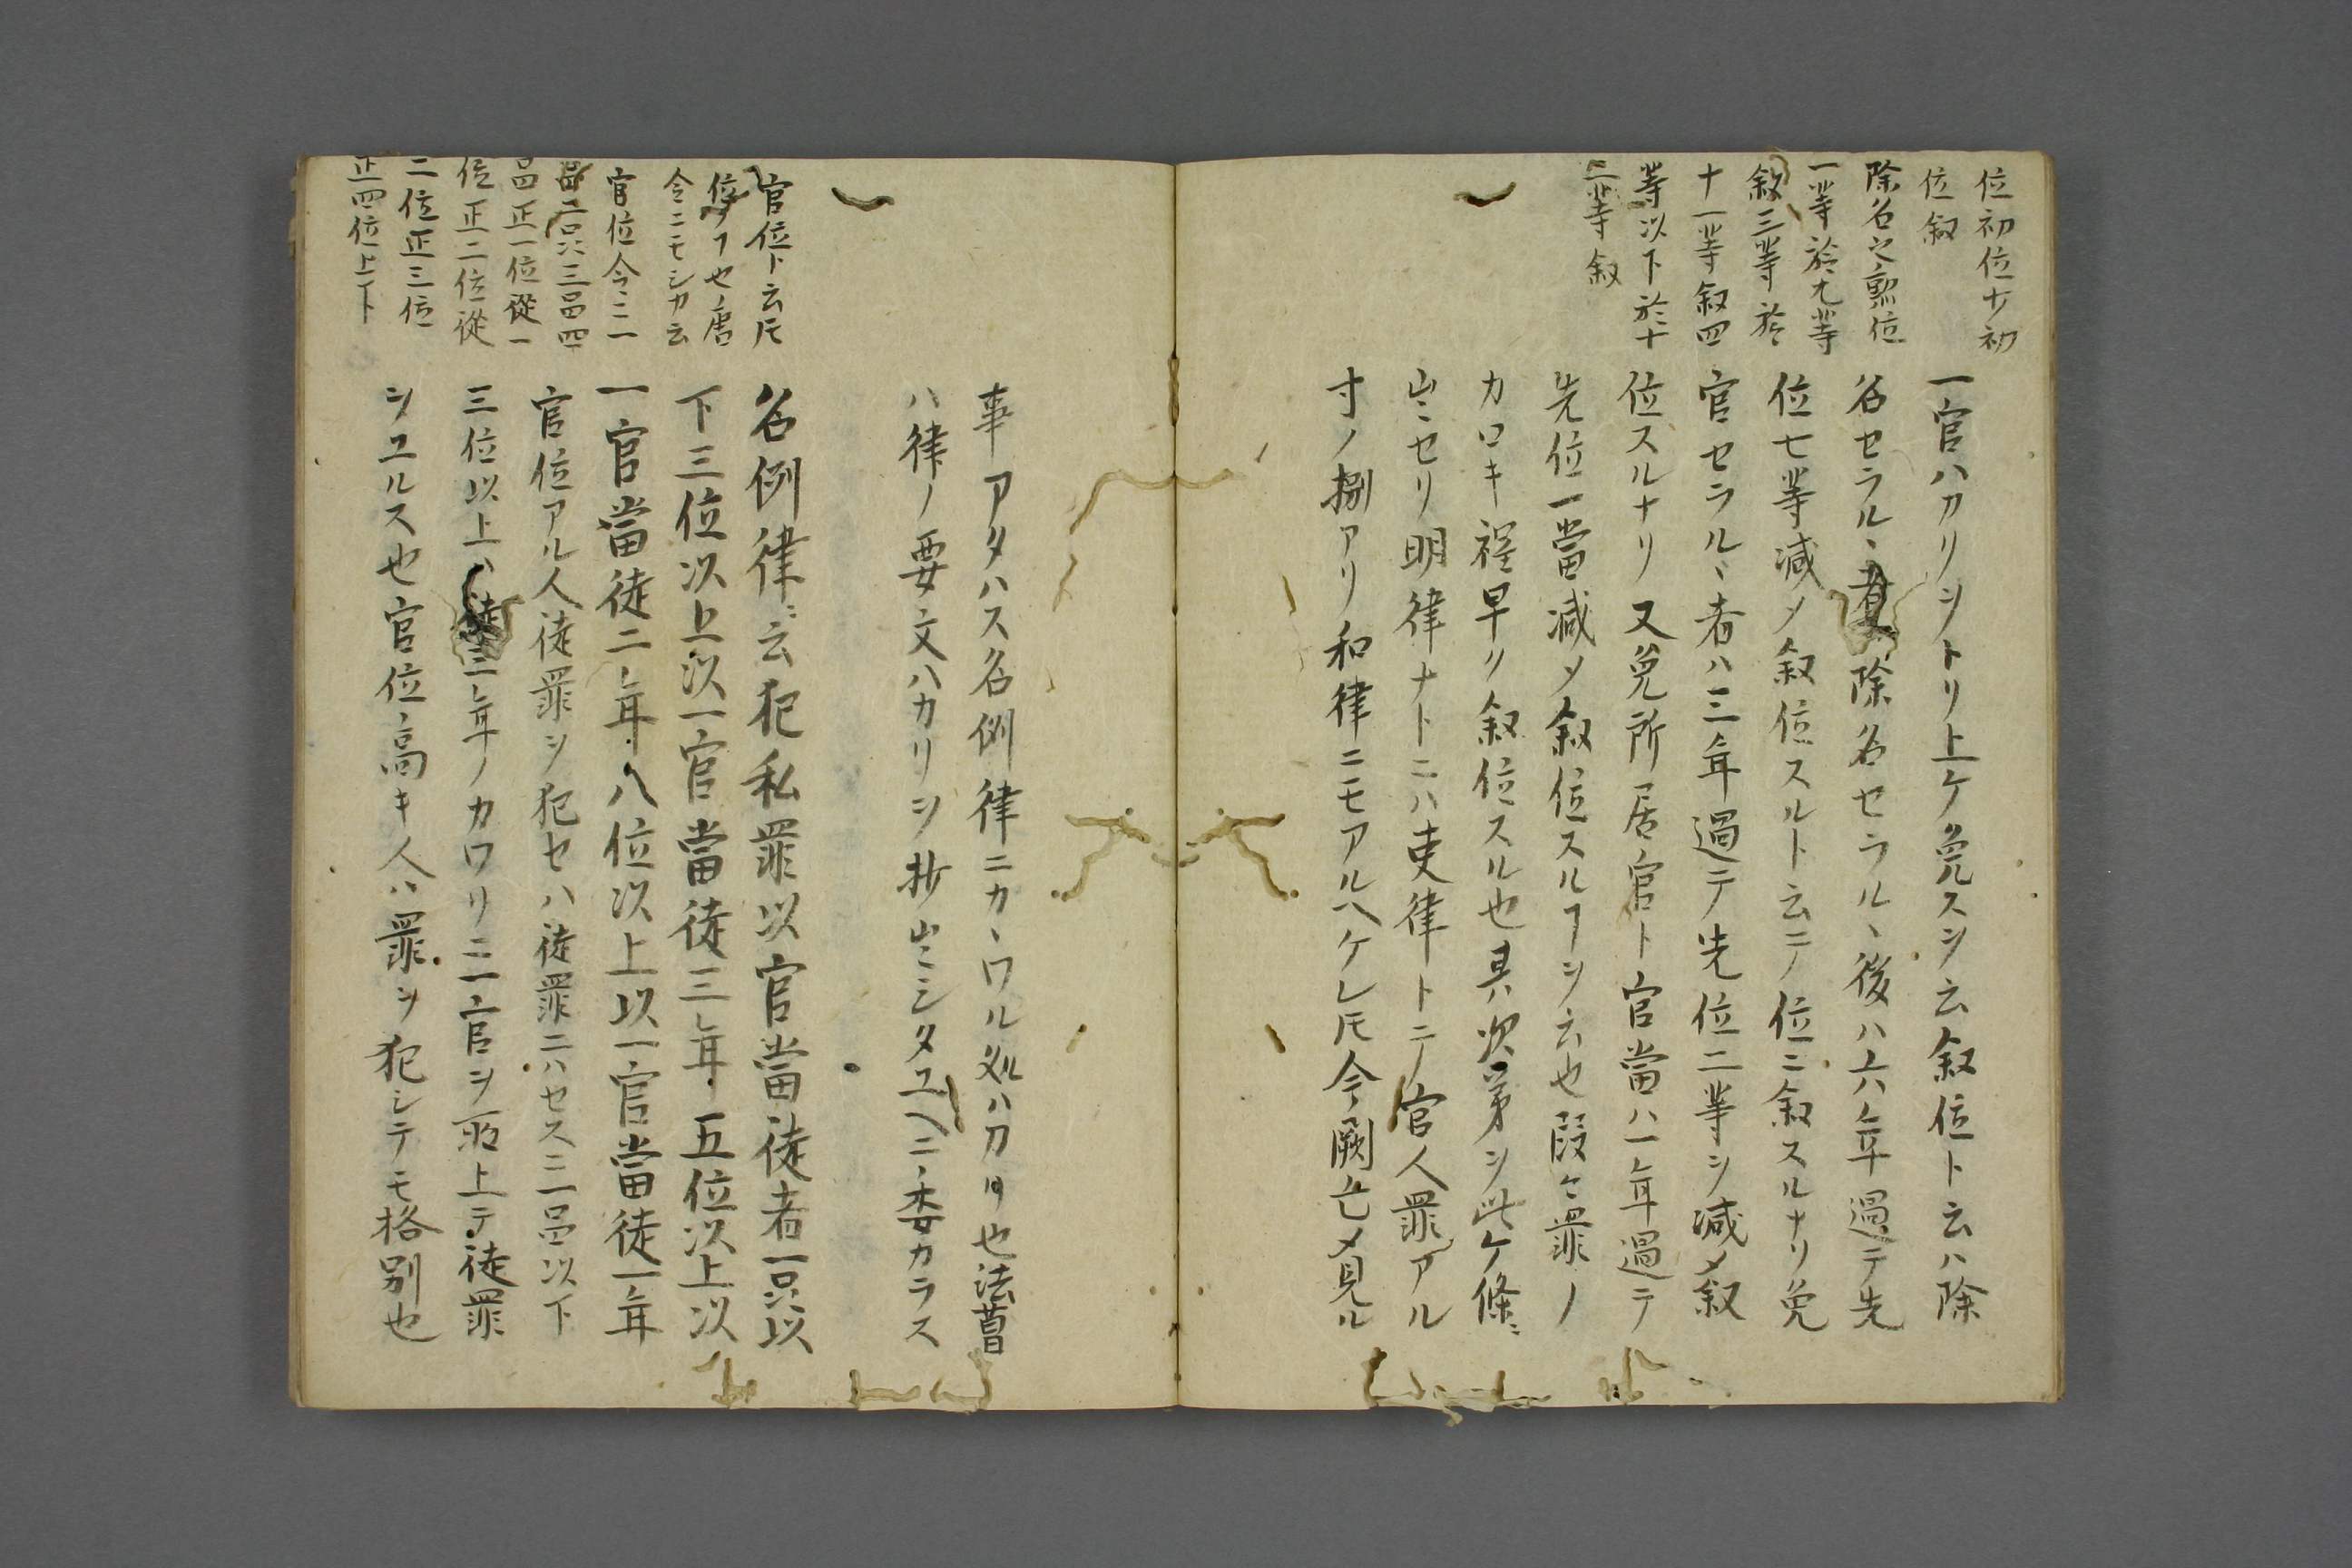 位初位ナ初
位叙
除名之勲位
一等於九等
叙三等於
十一等叙四
等以下於十
二等叙
一官ハカリヲトリ上ケ免スヲ云叙位ト云ハ除
名セラルヽ者ヲ除名セラルヽ後ハ六年過テ先
位七等減メ叙位スルト云テ位ニ叙スルナリ免
官セラルヽ者ハ三年過テ先位二等ヲ減メ叙
位スルナリ又免所居官ト官當ハ一年過テ
先位一當減メ叙位スルヿヲ云也段々罪ノ
カロキ程早ク叙位スル也其次第ヲ此ケ條ニ
出セリ明律ナトニハ吏律トテ官人罪アル
寸ノ捌アリ和律ニモアルヘケレ𪜈今闕亡メ見ル
事アタハス名例律ニカヽワル処ハカリ也法曹
ハ律ノ要文ハカリヲ抄出シタユヘニ委カラス
官位ト云𪜈
位ヿ也唐
令ニモシカ云
官位令ニ一
品二品三品四
品正一位從一
位正二位從
二位正三位
正四位上ト
名例律ニ云犯私罪以官當徒者一品以
下三位以上以一官當徒三年五位以上以
一官當徒二年八位以上以一官當徒一年
官位アル人徒罪ヲ犯セハ徒罪ニハセス三品以下
三位以上ハ徒三年ノカワリニ一官ヲ取上テ徒罪
ヲユルス也官位高キ人ハ罪ヲ犯シテモ格別也